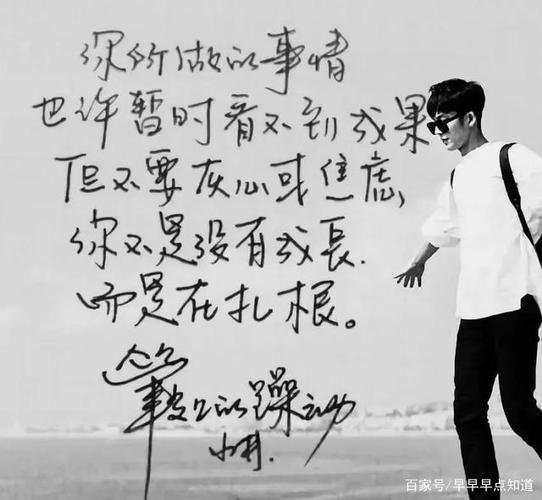 你所做的事情
也许暂时看不到成果
但不要灰心或焦虑，
你不是没有成長.
而是在扎根。
笔尖上的躁动
百家号/早早早点知道